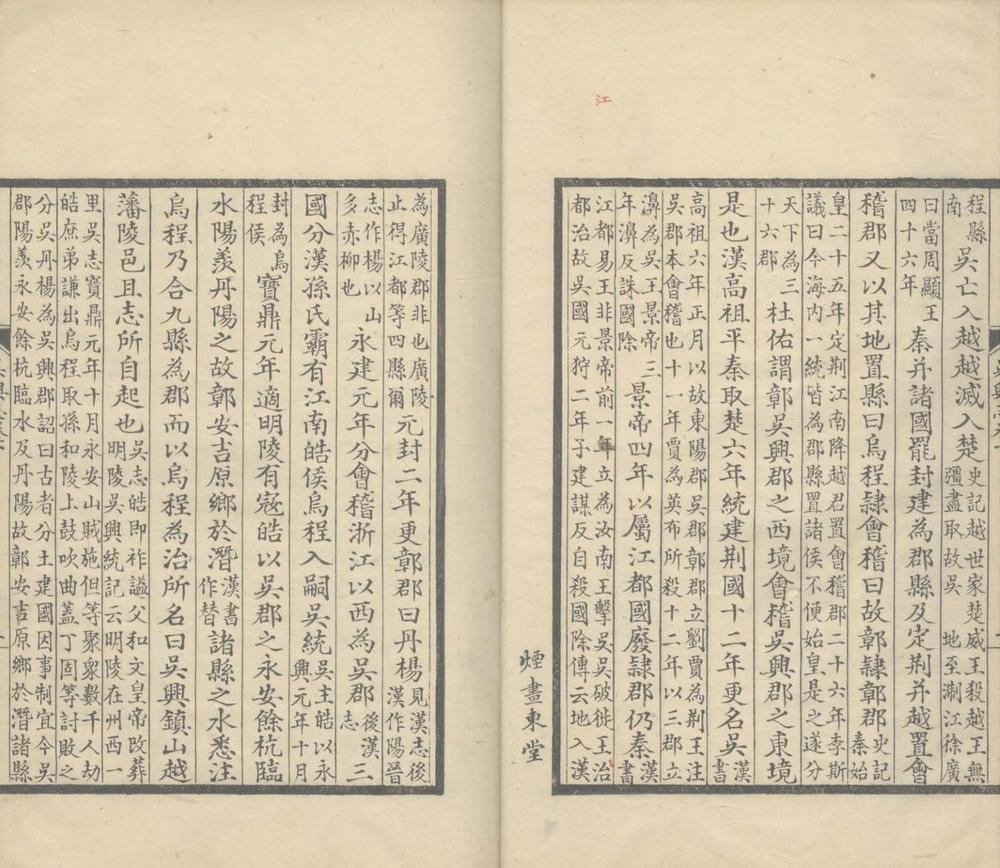 江
程縣
南
吳亡入越越滅入楚
史記越世家楚威王殺越王無
彊盡取故吳地至浙江徐廣
曰當周顯王
四十六年
秦并諸國罷封建為郡縣及定荆并越置會
稽郡又以其地置縣曰烏程隸會稽曰故鄣隸鄣郡
史記
秦始
皇二十五年定荆江南降越君置會稽郡二十六年李斯
議曰今海内一統皆為郡縣置諸侯不便始皇是之遂分
天下為三
十六郡
杜佑謂鄣吳興郡之西境會稽吳興郡之東境
是也漢高祖平秦取楚六年統建荆國十二年更名吳
漢
書
高祖六年正月以故東陽郡吳郡鄣郡立劉賈為荆王注
吳郡本會稽也十一年賈為英布所殺十二年以三郡立
濞為吳王景帝三
年濞反誅國除
景帝四年以屬江都國廢隸郡仍秦
漢
書
江都易王非景帝前一年立為汝南王擊吳吳破徙王治
都治故吳國元狩二年子建謀反自殺國除傳云地入漢
煙畫東堂
為廣陵郡非也廣陵
止得江都等四縣爾
元封二年更鄣郡曰丹楊
見漢志後
漢作陽晉
志作楊以山
多赤柳也
永建元年分會稽浙江以西為吳郡
後漢
志
三
國分漢孫氏霸有江南皓侯烏程入嗣吳統
吳主皓以永
興元年十月
封為烏
程侯
寶鼎元年適明陵有寇皓以吳郡之永安餘杭臨
水陽羨丹陽之故鄣安吉原鄉於潛
漢書
作朁
諸縣之水悉注
烏程乃合九縣為郡而以烏程為治所名曰吳興鎮山越
藩陵邑且志所自起也
吳志皓即祚謚父和文皇帝改葬
明陵吳興統記云明陵在州西一
里吳志寶鼎元年十月永安山賊施但等聚衆數千人劫
皓庶弟謙出烏程取孫和陵上鼓吹曲蓋丁固等討敗之
分吳丹楊為吳興郡詔曰古者分土建國因事制宜今吳
郡陽羨永安餘杭臨水及丹陽故鄣安吉原鄉於潛諸縣